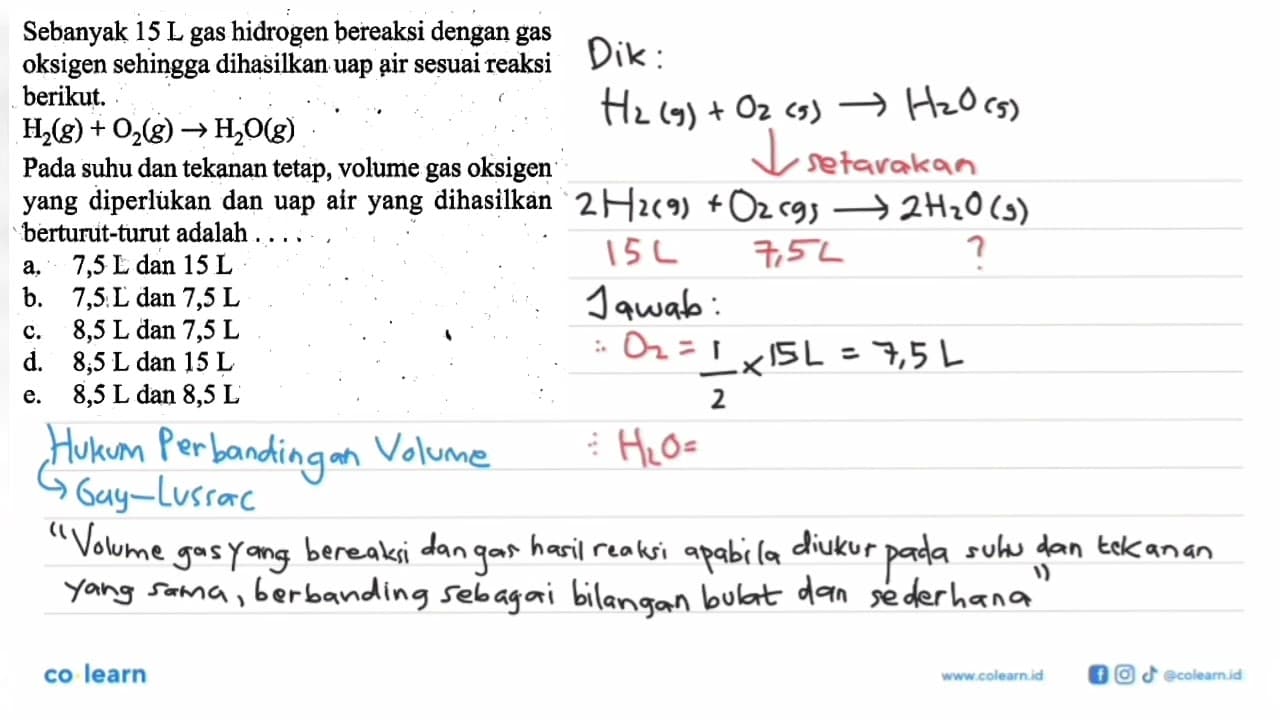 Sebanyak 15 L gas hidrogen bereaksi dengan gas
oksigen sehingga dihasilkan uap air sesuai reaksi
berikut.
H₂(g) + O₂(g) → H₂O(g)
Pada suhu dan tekanan tetap, volume gas oksigen
yang diperlukan dan uap air yang dihasilkan
berturut-turut adalah . . . .
a. 7,5 L dan 15 L
b. 7,5 L dan 7,5 L
c. 8,5 L dan 7,5 L
d. 8,5 L dan 15 L
e. 8,5 L dan 8,5 L
Dik :
H₂ (g) + O₂ (g) → H₂O (g)
↓ setarakan
2H₂(g) + O₂(g) → 2H₂O (g)
15 L 7,5 L ?
Jawab :
∴ O₂ = 1/2 × 15 L = 7,5 L
∴ H₂O =
Hukum Perbandingan Volume
↳ Gay-Lussac
"Volume gas yang bereaksi dan gas hasil reaksi apabila diukur pada suhu dan tekanan
yang sama, berbanding sebagai bilangan bulat dan sederhana"
co learn
www.colearn.id
@colearn.id